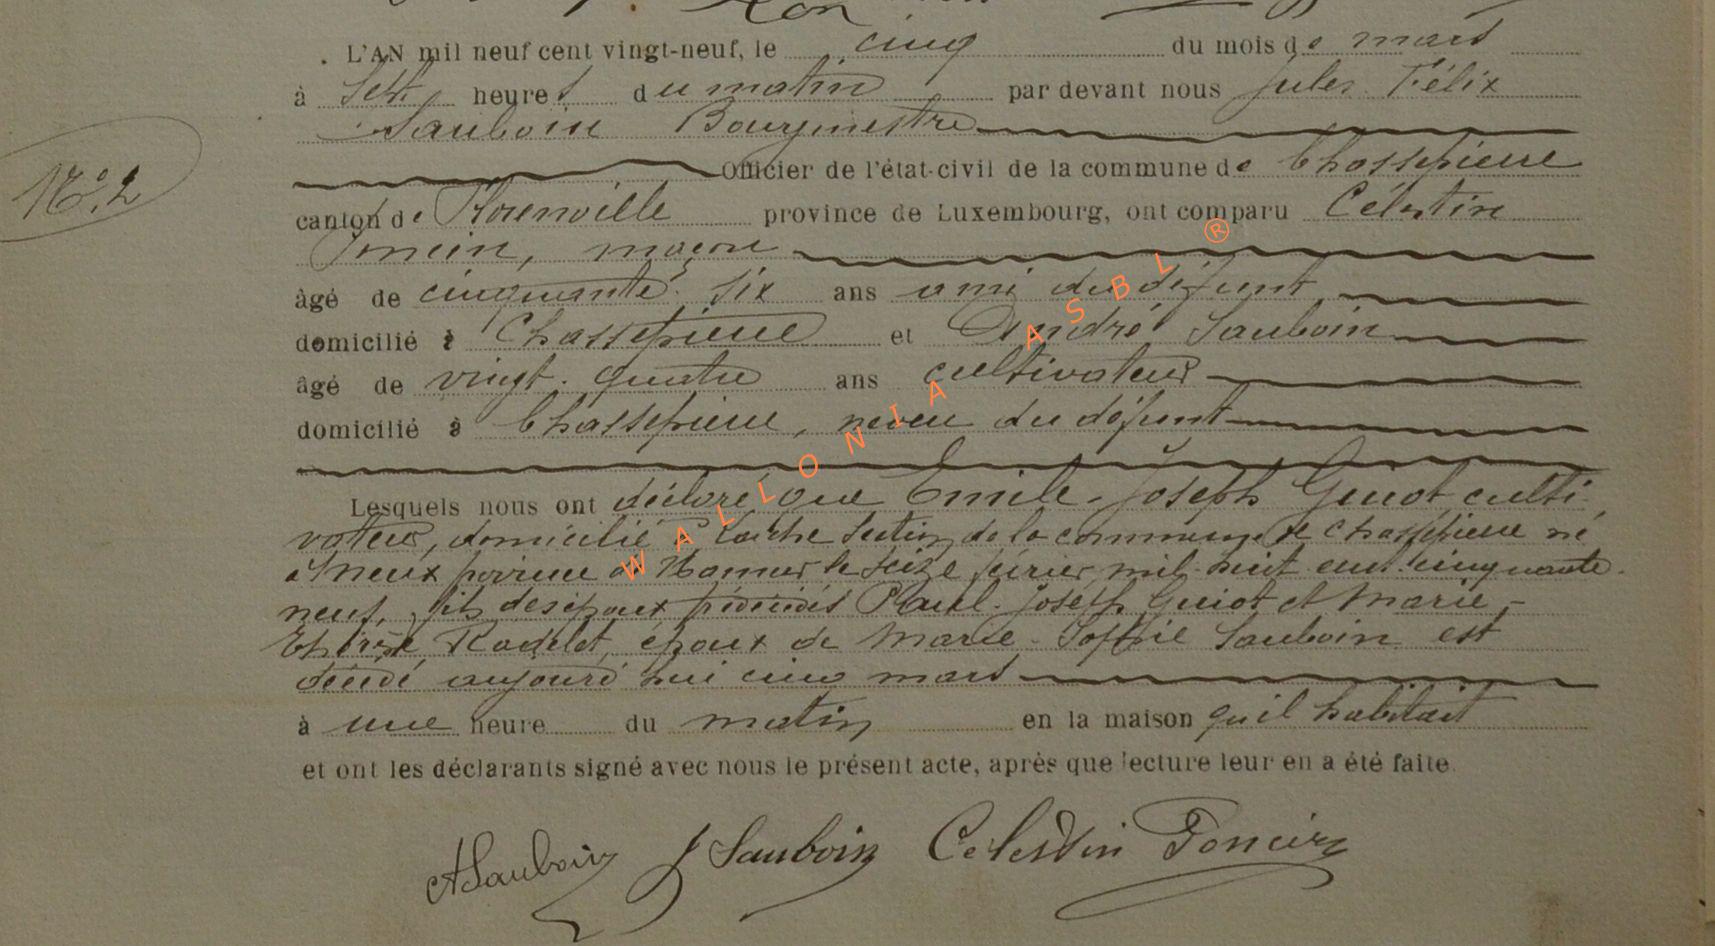 L'AN mil neuf cent vingt-neuf, le cinq du mois de mars
à sept heures du matin par devant nous Jules Félix
Sauboin Bourgmestre
Officier de l'état-civil de la commune de Chassepierre
canton de Florenville province de Luxembourg, ont comparu Célestin
Poncin, maçon
âgé de cinquante six ans ami du défunt
domicilié à Chassepierre et André Sauboin
âgé de vingt-quatre ans cultivateur
domicilié à Chassepierre, neveu du défunt
Lesquels nous ont déclaré que Emile-Joseph Guiot culti-
vateur, domicilié à Laiche section de la commune de Chassepierre né
à province de Namur le seize février mil huit cent cinquante-
neuf, fils des époux prédécédés Paul-Joseph Guiot et Marie-
Thérèse Rodelet, époux de Marie-Sophie Sauboin est
décédé aujourd'hui cinq mars
à une heure du matin en la maison qu'il habitait
et ont les déclarants signé avec nous le présent acte, après que lecture leur en a été faite.
No. 2
ASauboin J Sauboin Celestin Poncin
WALLONIA ASBL ®